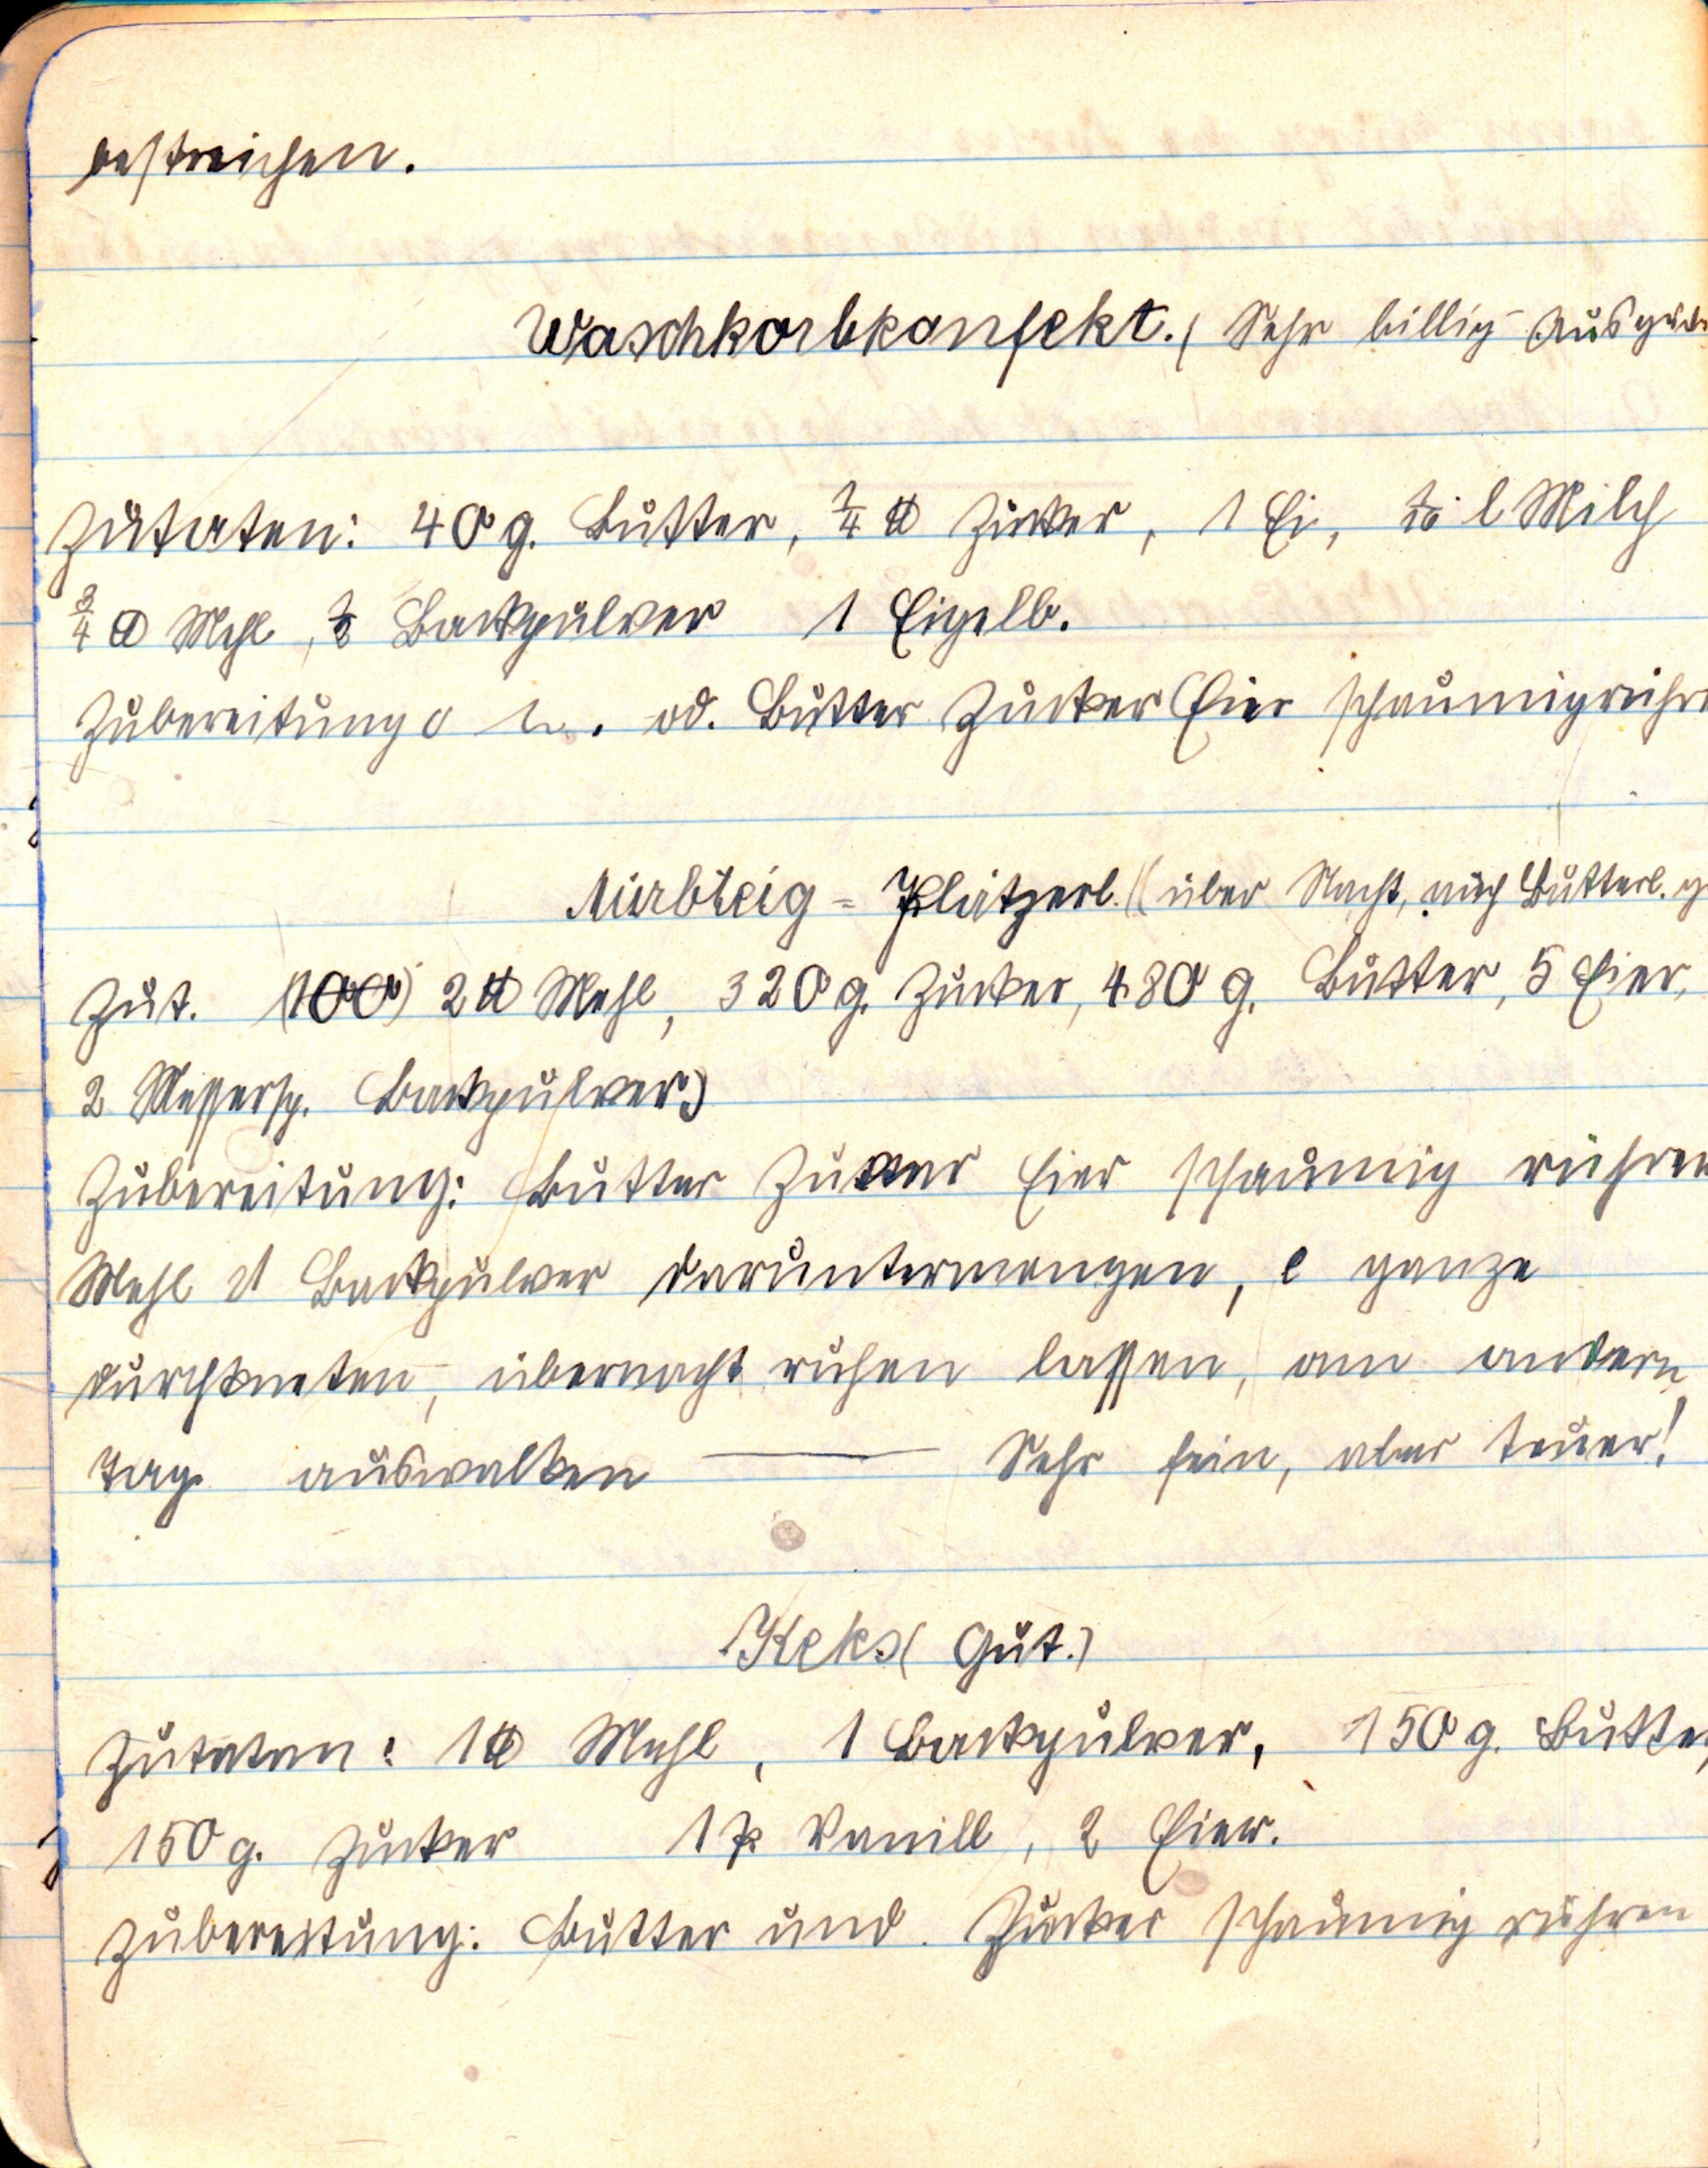 bestreichen.
Waschkorbkonfekt. ( Sehr billig
Zutaten: 40 g. Butter, ¼ ℔ Zucker, 1 Ei, l Milch
¾ ℔ Mehl, ½ Backpulver 1 Eigelb.
Zubereitung od. Butter Zucker Eier schaumigrühre
Mürbteig = Plätzerl. ( über Nacht, auch Butterl. g
Zut. (100) 2 ℔ Mehl, 320 g. Zucker, 480 g. Butter, 5 Eier,
2 Messersp. Backpulver)
Zubereitung: Butter Zucker Eier schaumig rühren
Mehl Backpulver daruntermengen, ganze
durchkneten, übernacht ruhen lassen, am andern
Tag auswalken — Sehr fein, aber teuer!
Keks ( Gut.)
Zutaten: 1 ℔ Mehl, 1 Backpulver, 150 g. Butter,
150 g. Zucker 1 P. Vanill, 2 Eier.
Zubereitung: Butter und Zucker schaumig rühren